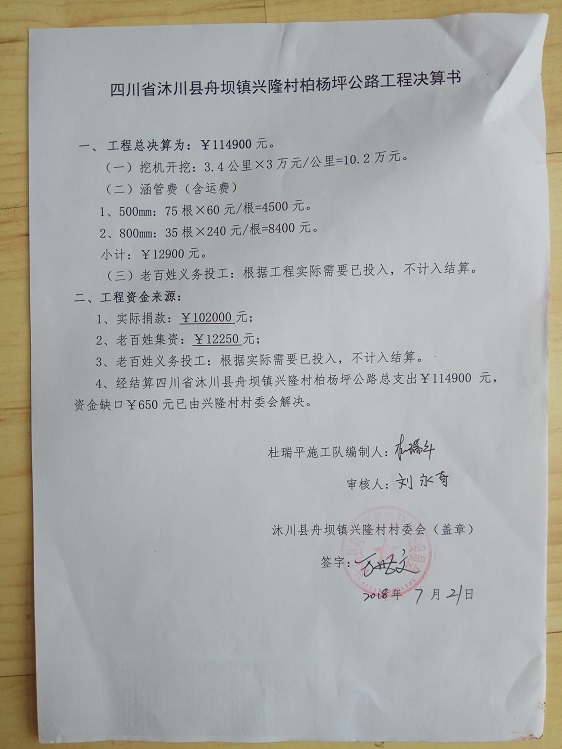 四川省沐川县舟坝镇兴隆村柏杨坪公路工程决算书
一、工程总决算为：￥114900元。
（一）挖机开挖：3.4公里×3万元/公里=10.2万元。
（二）涵管费（含运费）
1、500mm：75根×60元/根=4500元。
2、800mm：35根×240元/根=8400元。
小计：￥12900元。
（三）老百姓义务投工：根据工程实际需要已投入，不计入结算。
二、工程资金来源：
1、实际捐款：￥102000元；
2、老百姓集资：￥12250元；
3、老百姓义务投工：根据实际需要已投入，不计入结算。
4、经结算四川省沐川县舟坝镇兴隆村柏杨坪公路总支出￥114900元，
资金缺口￥650元已由兴隆村村委会解决。
杜瑞平施工队编制人：
审核人：刘永奇
沐川县舟坝镇兴隆村村委会（盖章）
签字：
2018年7月21日